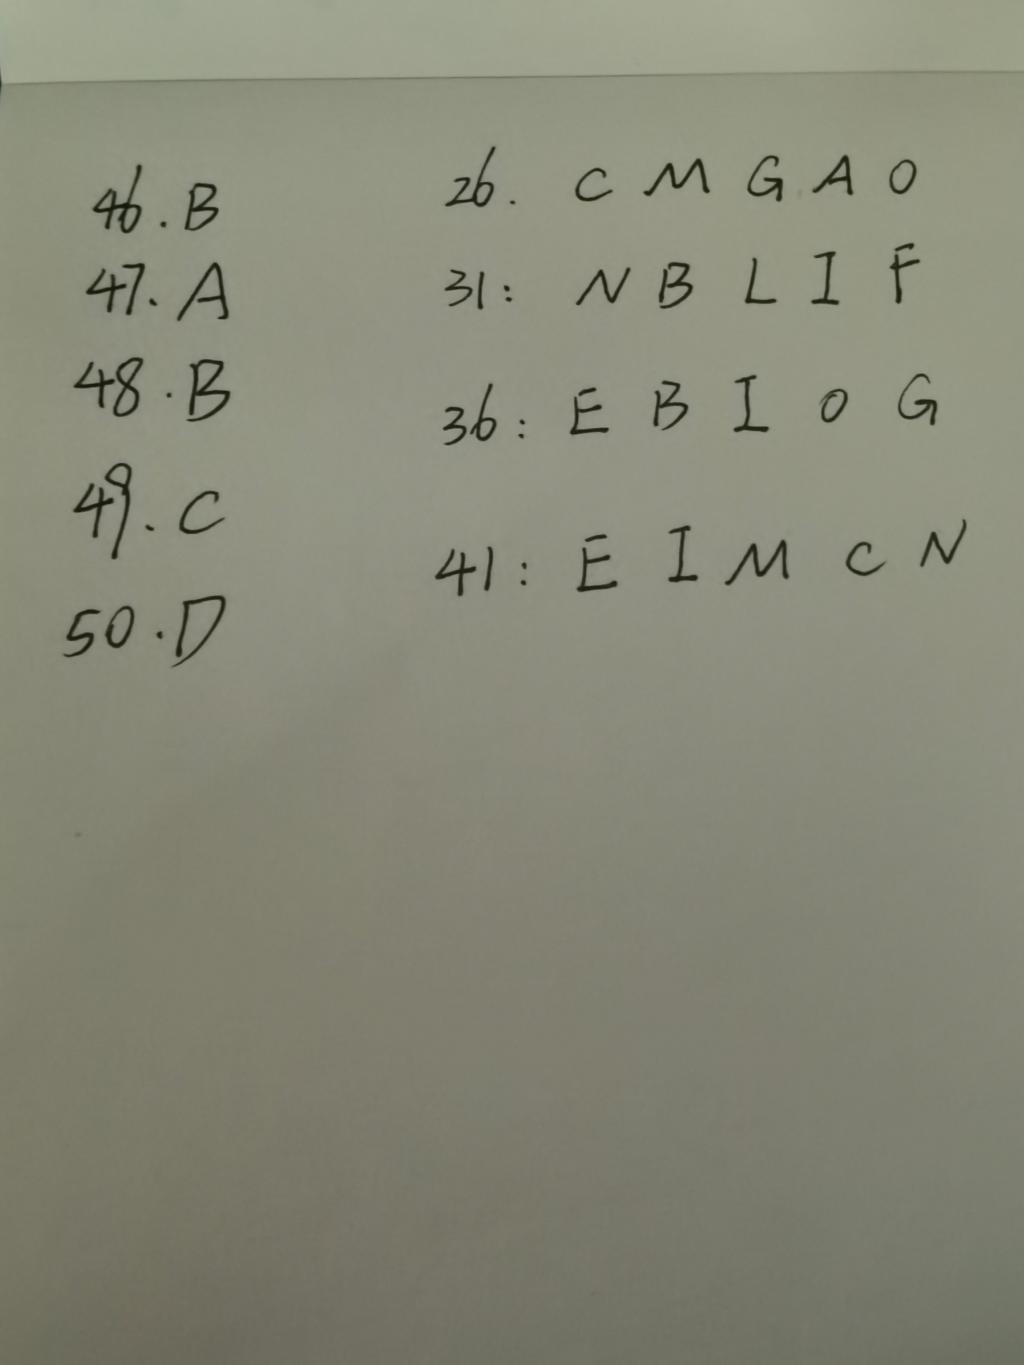 46. B
47. A
48. B
49. C
50. D
26. C M G A O
31: N B L I F
36: E B I O G
41: E I M C N